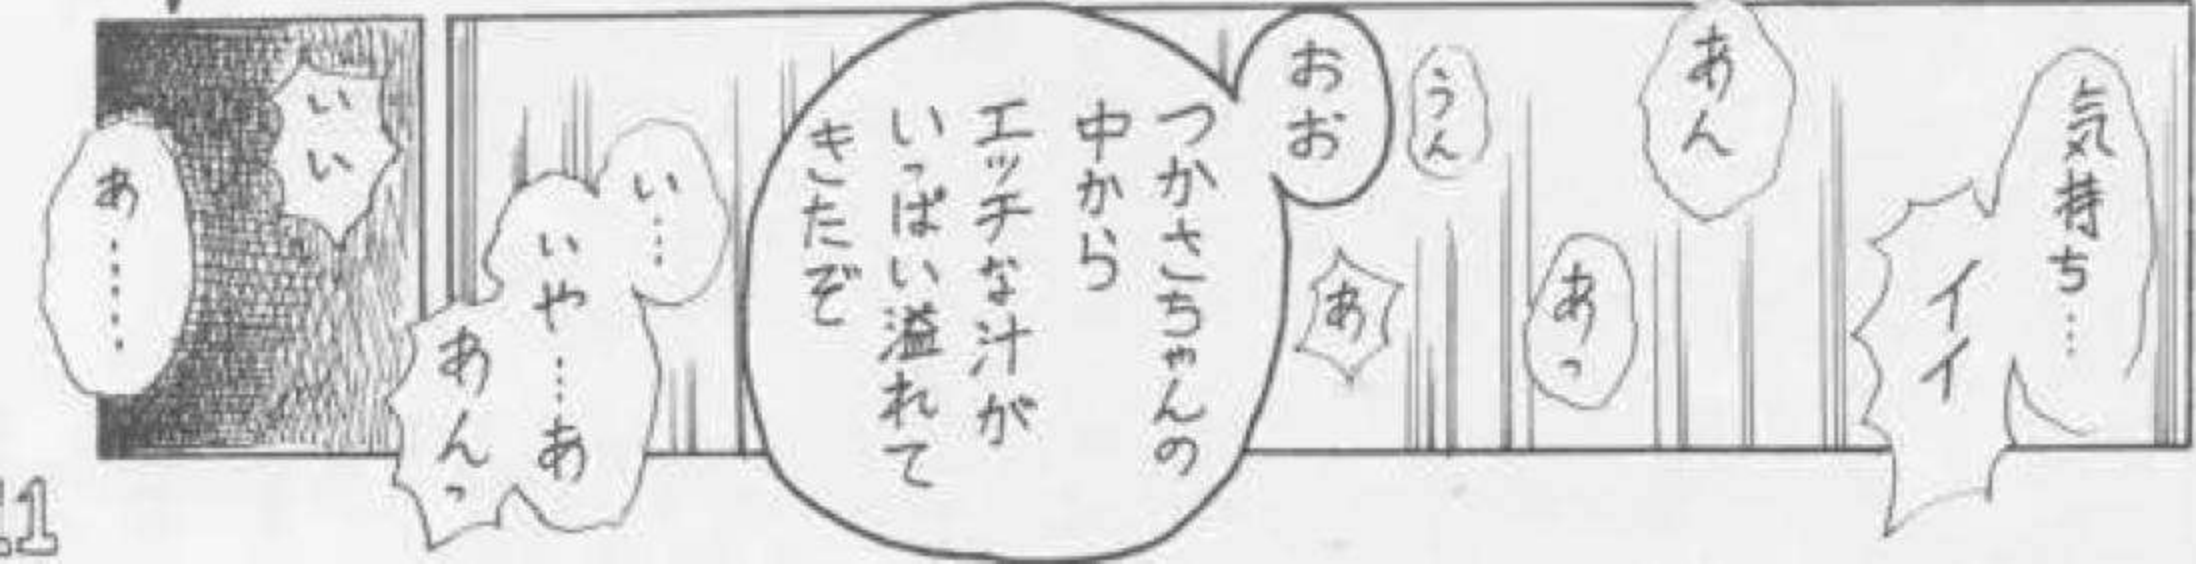 気持ち…
イイ
あん
あっ
うん
あ
おお
つかさちゃんの
中から
エッチな汁が
いっぱい溢れて
きたぞ
い…
いや…あ
あんっ
いい
あ……
11